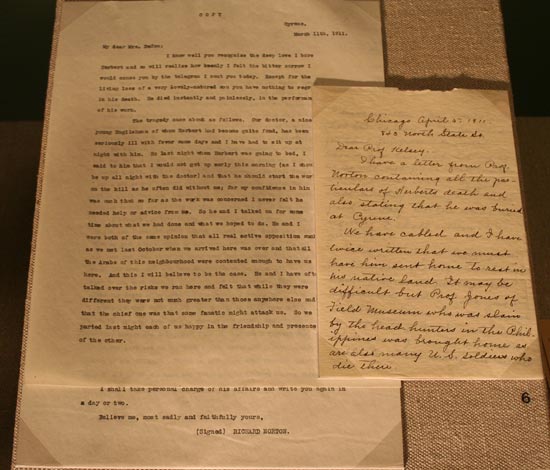 COPY
Cyrene.
March 11th, 1911.
My dear Mrs. DeCou.
I know well you recognize the deep love I bore
Herbert and so will realize how keenly I felt the bitter sorrow I
would cause you by the telegram I sent you today. Except for the
living loss of a very lovely-natured son you have nothing to regret
in his death. He died instantly and painlessly, in the performance
of his work.
The tragedy came about as follows. Our doctor, a nice
young Englishman of whom Herbert had become quite fond, has been
seriously ill with fever some days and I have had to sit up at
night with him. So last night when Herbert was going to bed, I
said to him that I would not get up early this morning (as I should
be up all night with the doctor) and that he should start the work
on the hill as he often did without me; for my confidence in him
was such that so far as the work was concerned I never felt he
needed help or advice from me. So he and I talked on for some
time about what we had done and what we hoped to do. He and I
were both of the same opinion that all real active opposition such
as we met last October when we arrived here was over and that all
the Arabs of this neighbourhood were contented enough to have us
here. And this I will believe to be the case. He and I have often
talked over the risks we run here and felt that while they were
different they were not much greater than those anywhere else and
that the chief one was that some fanatic might attack us. So we
parted last night each of us happy in the friendship and presence
of the other.
I shall take personal charge of his affairs and write you again in
a day or two.
Believe me, most sadly and faithfully yours,
(Signed) RICHARD NORTON.
Chicago April 5- 1911
North State St.
Dear Prof. Kelsey.
I have a letter from Prof.
Norton containing all the par-
ticulars of Herberts death and
also stating that he was buried
at Cyrene.
We have cabled and I have
twice written that we must
have him sent home to rest in
his native land. It may be
difficult but Prof. Jones of
Field Museum who was slain
by the head hunters in the Phil-
ippines was brought home as
are also many U.S. soldiers who
die there.
6